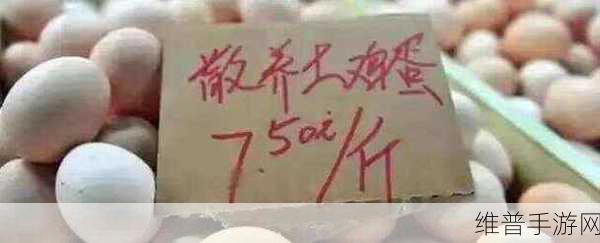 散养土鸡蛋
7.50元/斤
维普手游网